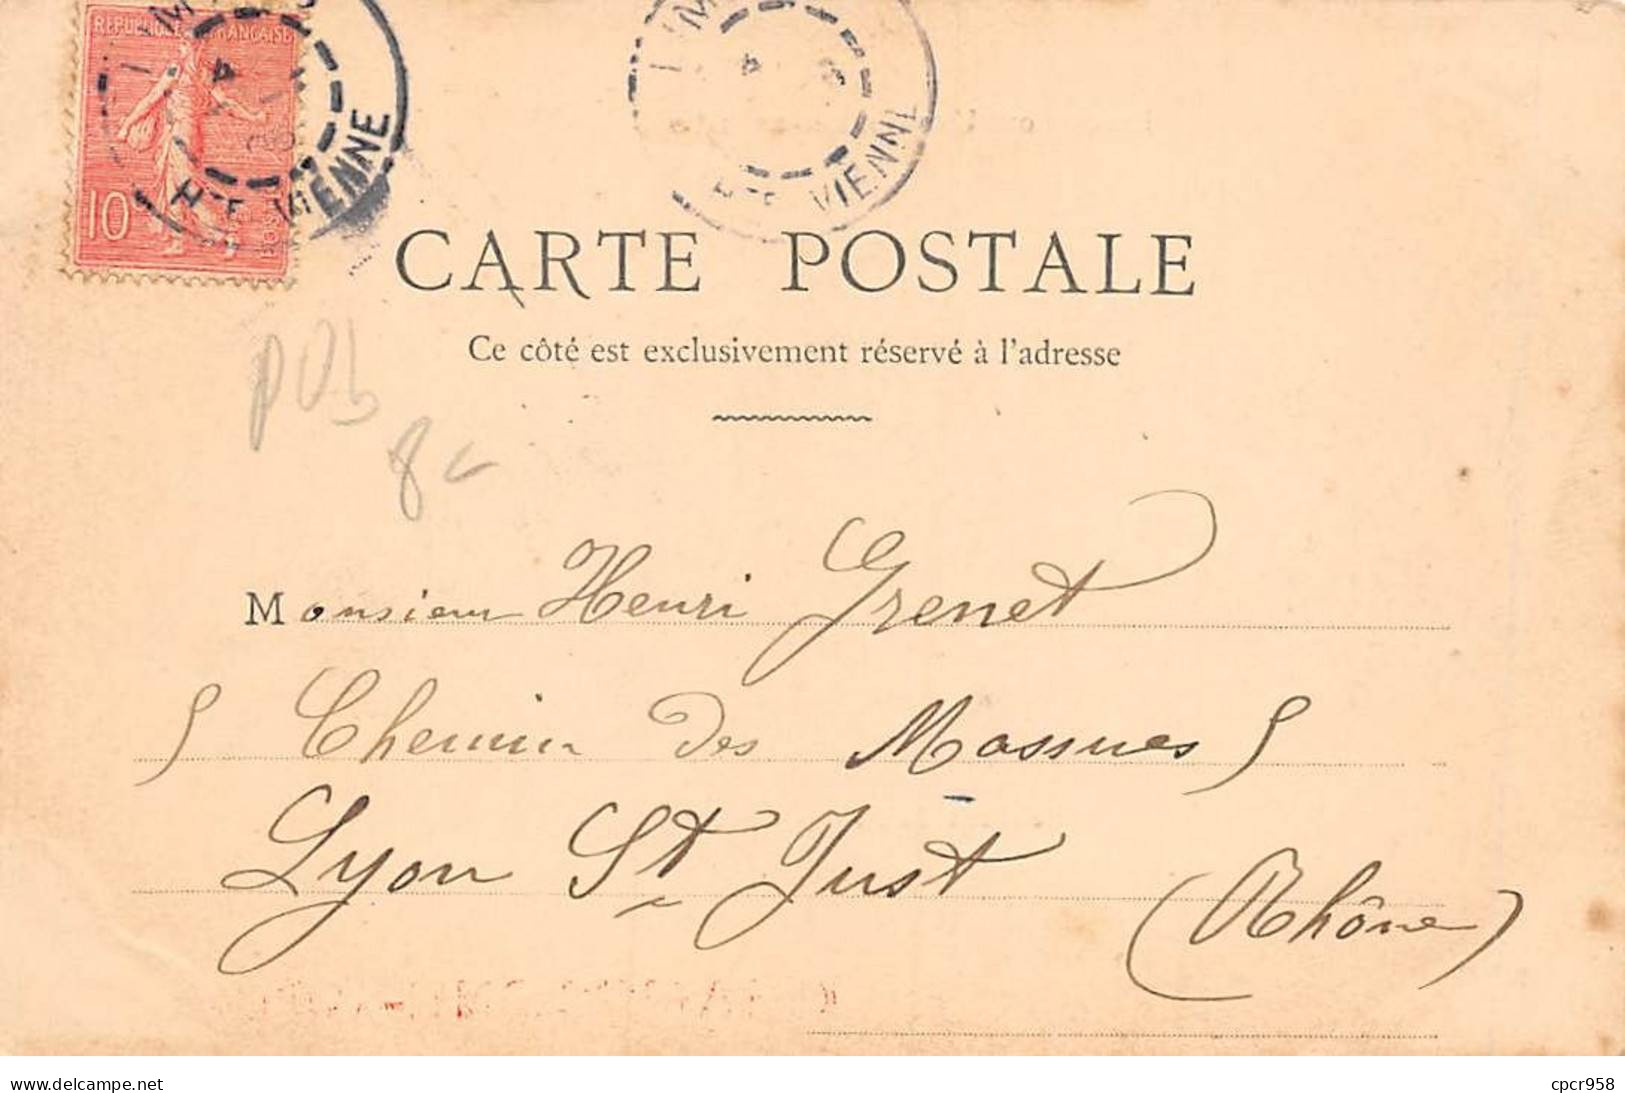 REPUBLIQUE FRANÇAISE
10
4
Hte VIENNE
4
Hte VIENNE
CARTE POSTALE
Ce côté est exclusivement réservé à l'adresse
8
Monsieur Henri Grenet
5 Chemin des Massues 5
Lyon St Just (Rhône)
delcampe.net
cpcr958